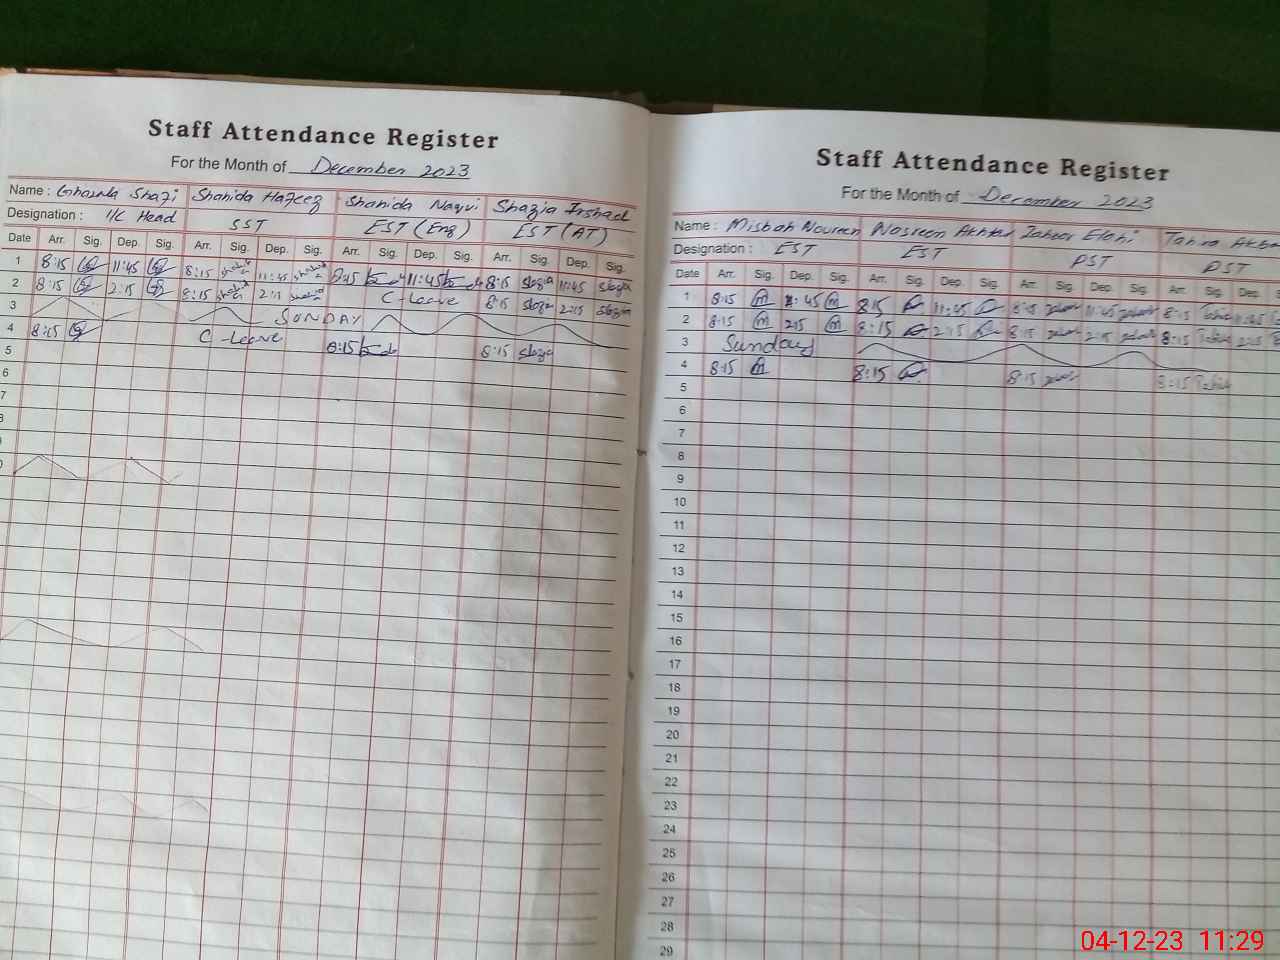 Staff Attendance Register
For the Month of December 2023
Name : Ghazala Shazi Shahida Hafeez Shahida Naqvi Shazia Irshad
Designation : I/C Head SST EST (Eng) EST (AT)
Date Arr. Sig. Dep. Sig. Arr. Sig. Dep. Sig. Arr. Sig. Dep. Sig. Arr. Sig. Dep. Sig.
1 8:15 11:45 8:15 11:45 8:15 11:45 8:15 11:45
2 8:15 2:15 8:15 2:15 C-Leave 8:15 2:15
3 SUNDAY
4 8:15 C-Leave 8:15 8:15
5
6
7
8
9
Staff Attendance Register
For the Month of December 2023
Name : Misbah Noureen Nasreen Akhtar Zahoor Elahi Tahira
Designation : EST EST PST PST
Date Arr. Sig. Dep. Sig. Arr. Sig. Dep. Sig. Arr. Sig. Dep. Sig. Arr. Sig. Dep.
1 8:15 11:45 8:15 11:45 8:15 11:45 8:15 11:45
2 8:15 2:15 8:15 2:15 8:15 2:15 8:15 2:15
3 Sunday
4 8:15 8:15 8:15 8:15
5
6
7
8
9
10
11
12
13
14
15
16
17
18
19
20
21
22
23
24
25
26
27
28
29
04-12-23 11:29